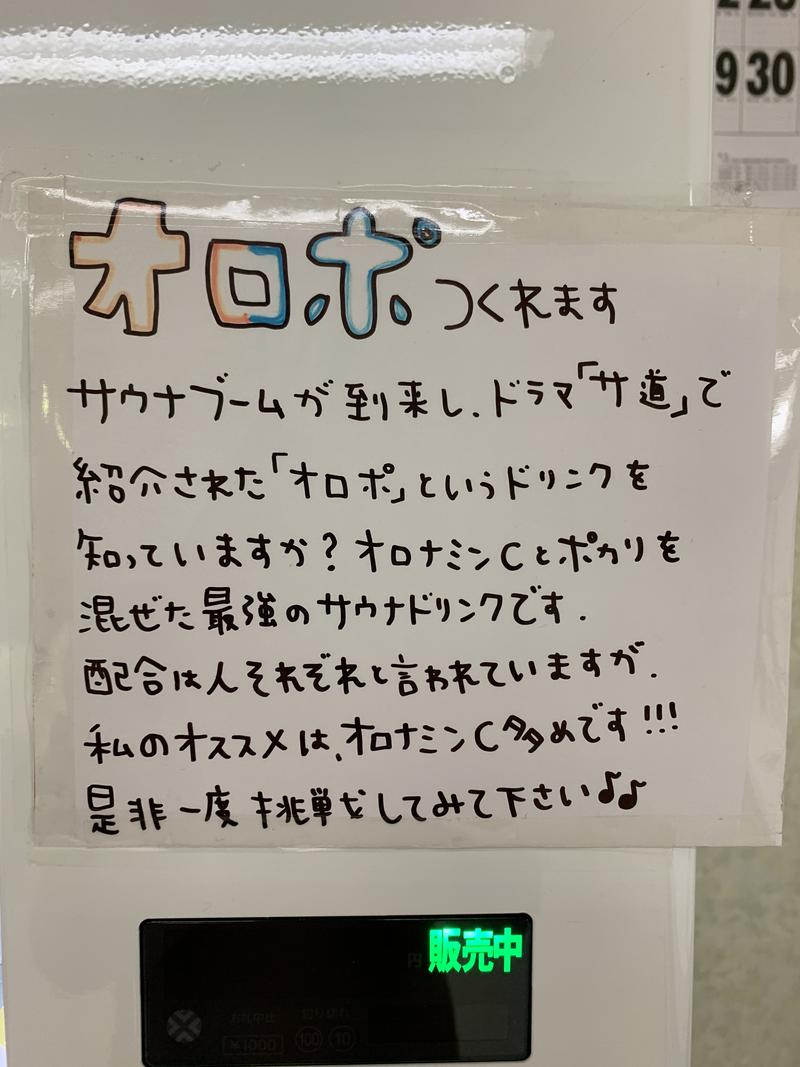 9 30
オロポ つくれます
サウナブームが到来し、ドラマ「サ道」で
紹介された「オロポ」というドリンクを
知っていますか？オロナミンCとポカリを
混ぜた最強のサウナドリンクです。
配合は人それぞれと言われていますが、
私のオススメは、オロナミンC多めです!!!
是非一度挑戦してみて下さい♪♫
円 販売中
お札中止 釣り切れ
¥1000 100 10